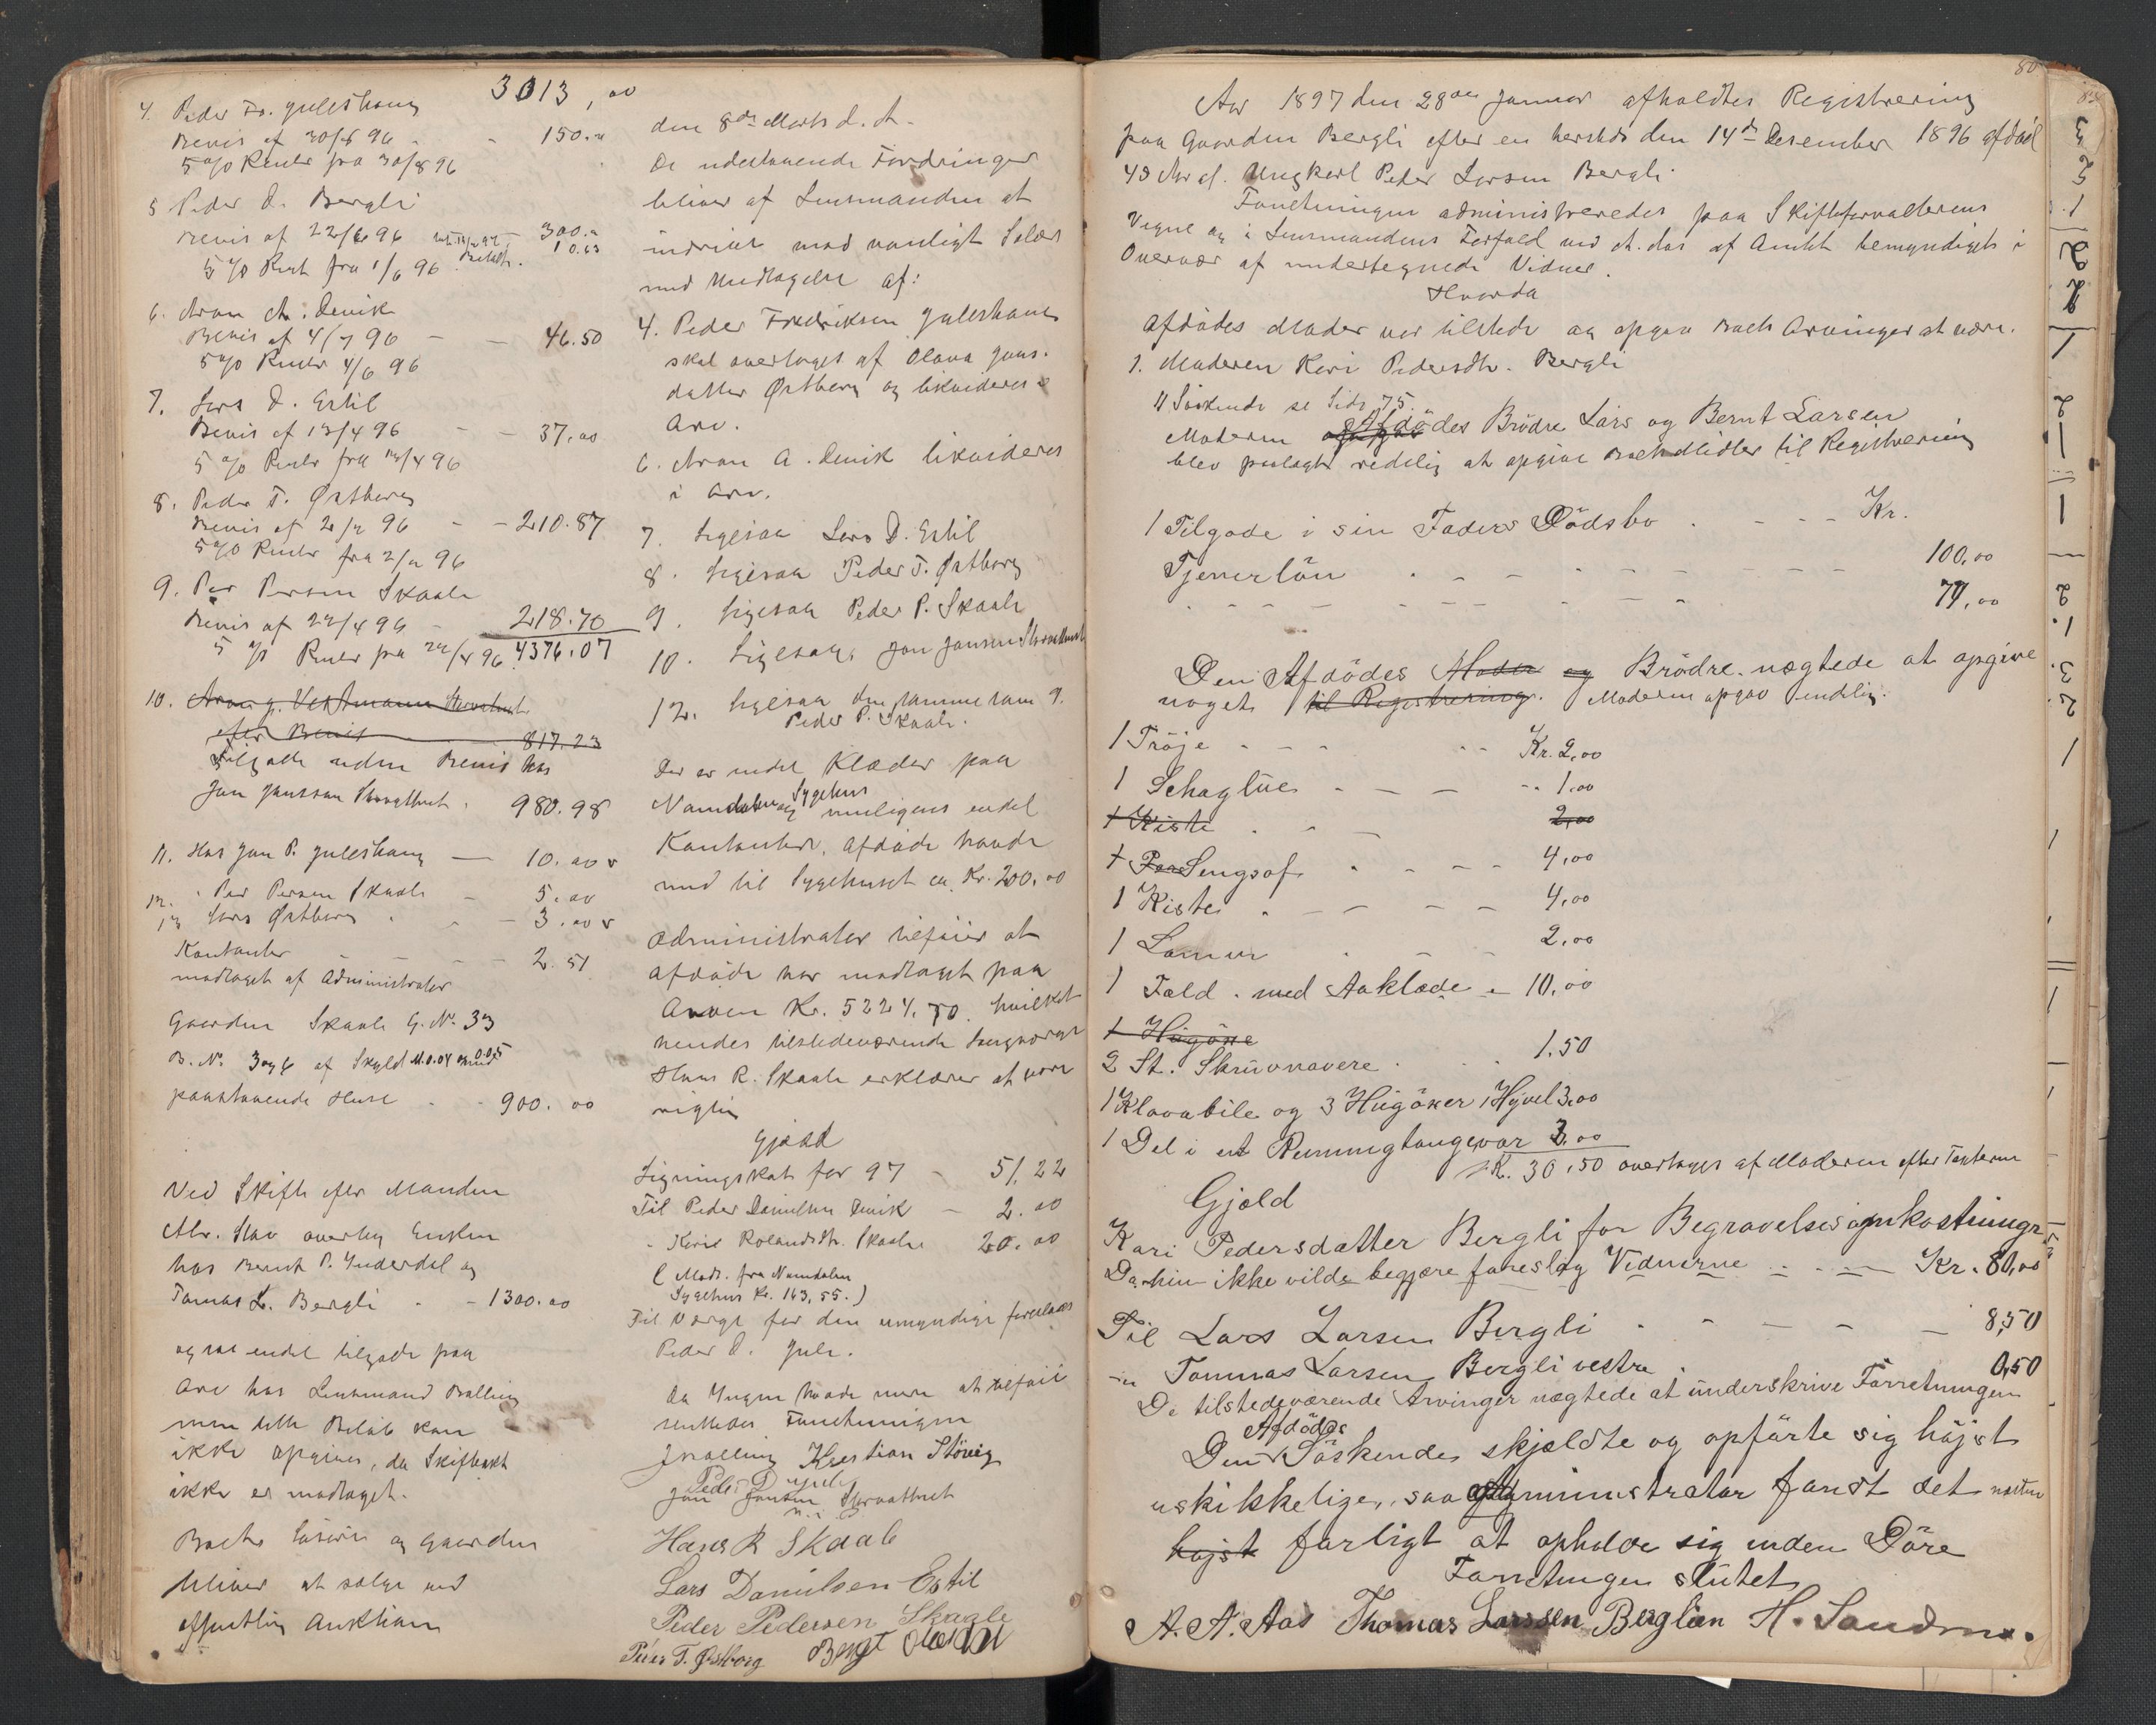 3013,00
4. Peder Fr. Juleshaug
Bevis af 30/8 96 - - 150.00
5 % Renter fra 30/8 96
5 Peder D. Bergli
Bevis af 22/6 96 300.00
5 % Rent fra 1/6 96 Betalt. 10.63
6. Aron A. Devik
Bevis af 4/7 96 - - 46.50
5 % Renter 4/6 96
7. Lars D. Estil
Bevis af 13/4 96 - - 37.00
5 % Renter fra 13/4 96
8. Peder T. Østborg
Bevis af 2/2 96 - - 210.87
5 % Renter fra 2/2 96
9. Per Persen Skaale
Bevis af 22/4 96 - 218.70
5 % Renter fra 22/4 96 4376.07
10. Aron J. Vestmann
efter Bevis 817.23
Tilgode uden Bevis hos
Jon Jonssen Storvattnet . 980.98
11. Hos Jon P. Juleshaug — 10.00 v
12. " Per Persen Skaale - 5.00
13 Lars Østborg - 3.00 v
Kontanter - - - 2.51
modtaget af Administrator
Gaarden Skaale G. No. 33
B. No. 3 og 6 af Skyld M. 0.04 og 0.05 med
paastaaende Huse - - 900.00
Ved Skifte efter Manden
overtog Enken
hos Bernt P. Inderdal og
Tomas L. Bergli - - 1300.00
og saa endel tilgode paa
Arv hos Lensmand Balling
men dette Beløb kan
ikke opgives, da Skifteakt
ikke er modtaget.
Boets Løsøre og Gaarden
bliver at sælge ved
offentlig Auktion
den 8de Marts d. A.
De udestaaende Fordringer
bliver af Lensmanden at
inddrive mod vanligt Salær
med Undtagelse af:
4. Peder Fredriksen Juleshaug
skal overtages af Olava Jons-
datter Østborg og likvideres i
Arv.
6. Aron A. Devik likvideres
i Arv.
7. Ligesaa Lars D. Estil
8. Ligesaa Peder T. Østborg
9. Ligesaa Peder P. Skaale
10. Ligesaa Jon Jonsen Storvattnet
12. Ligesaa den samme som 9.
Peder P. Skaale.
Der er endel Klæder paa
Namdalens Sygehus og muligens endel
Kontanter, afdøde havde
med til Sygehuset ca. Kr. 200.00
Administrator tilføier at
afdøde har modtaget paa
Arven Kr. 5224.70. hvilket
hendes tilstedeværende Laugværge
Hans R. Skaale erklærer at være
rigtig
Gjæld
Ligningskat for 97 - 51.22
Til Peder Danielsen Devik - 2.00
" Kiril Rolandsdtr. Skaale 20.00
( Modt. fra Namdalen
Sygehus Kr. 163,55.)
Til Værge for den umyndige foreslaaes
Peder D. Jule.
Da Ingen havde mere at tilføie
sluttedes Forretningen
JBalling Kristian Støvig
Peder D Jule
Jon Jonsen Storvattnet
Hans R Skaale
Lars Danielsen Estil
Peder Pedersen Skaale
Peder T. Østborg
80
Aar 1897 den 28de Januar afholdtes Registrering
paa Gaarden Bergli efter en hersteds den 14de Desember 1896 afdød
43 Aar gl. Ungkarl Peder Larsen Bergli.
Forretningen administreredes paa Skifteforvalterens
Vegne og i Lensmandens Forfald ved A. Aas af Amtet bemyndiget i
Overvær af undertegnede Vidner.
Hvorda
Afdødes Moder var tilstede og opgav Boets Arvinger at være.
1. Moderen Kari Pedersdtr. Bergli
11 Søskende se Side 75.
Moderen Afdødes Brødre Lars og Bernt Larsen
blev paalagt redelig at opgive Boets Midler til Registrering
1 Tilgode i sin Faders Dødsbo . - - - Kr.
Tjenerlön . - - - - - - - 100,00
. - - - - - - - 79,00
Den Afdödes Moder og Brödre nægtede at opgive
noget til Registrering. Moderen opgav endelig.
1 Tröje - - - - - Kr. 2,00
1 Schaglue - - - - - 1.00
1 Kiste . - - 2,00
1 Sengsof. . - - - 4,00
1 Kiste . - - - - 4,00
1 Lomur . - - 2,00
1 Fæld . med Aaklæde - 10,00
1 Hugöxe
2 St. Skruvnavere . . 1.50
1 Klovabile og 3 Hugöxer 1 Hövel 3.00
1 Del i et Rennungtougvar 3.00
K. 30.50 overtages af Moderen efter Taxterne
Gjæld
Kari Pedersdatter Bergli for Begravelsesomkostninger
Da hun ikke vilde begjære foreslog Vidnerne - - - Kr. 80,00
Til Lars Larsen Bergli - - - - - 8,50
-"- Tommas Larsen Bergli vestre . 0,50
De tilstedeværende Arvinger nægtede at underskrive Forretningen
Den Afdödes Söskende skjældte og opförte sig höjst
uskikkelige, saa Administrator fandt det næsten
højst farligt at opholde sig inden Döre
Forretningen slutet
A. A. Aas Thomas Larssen Berglien H. Sandmo.